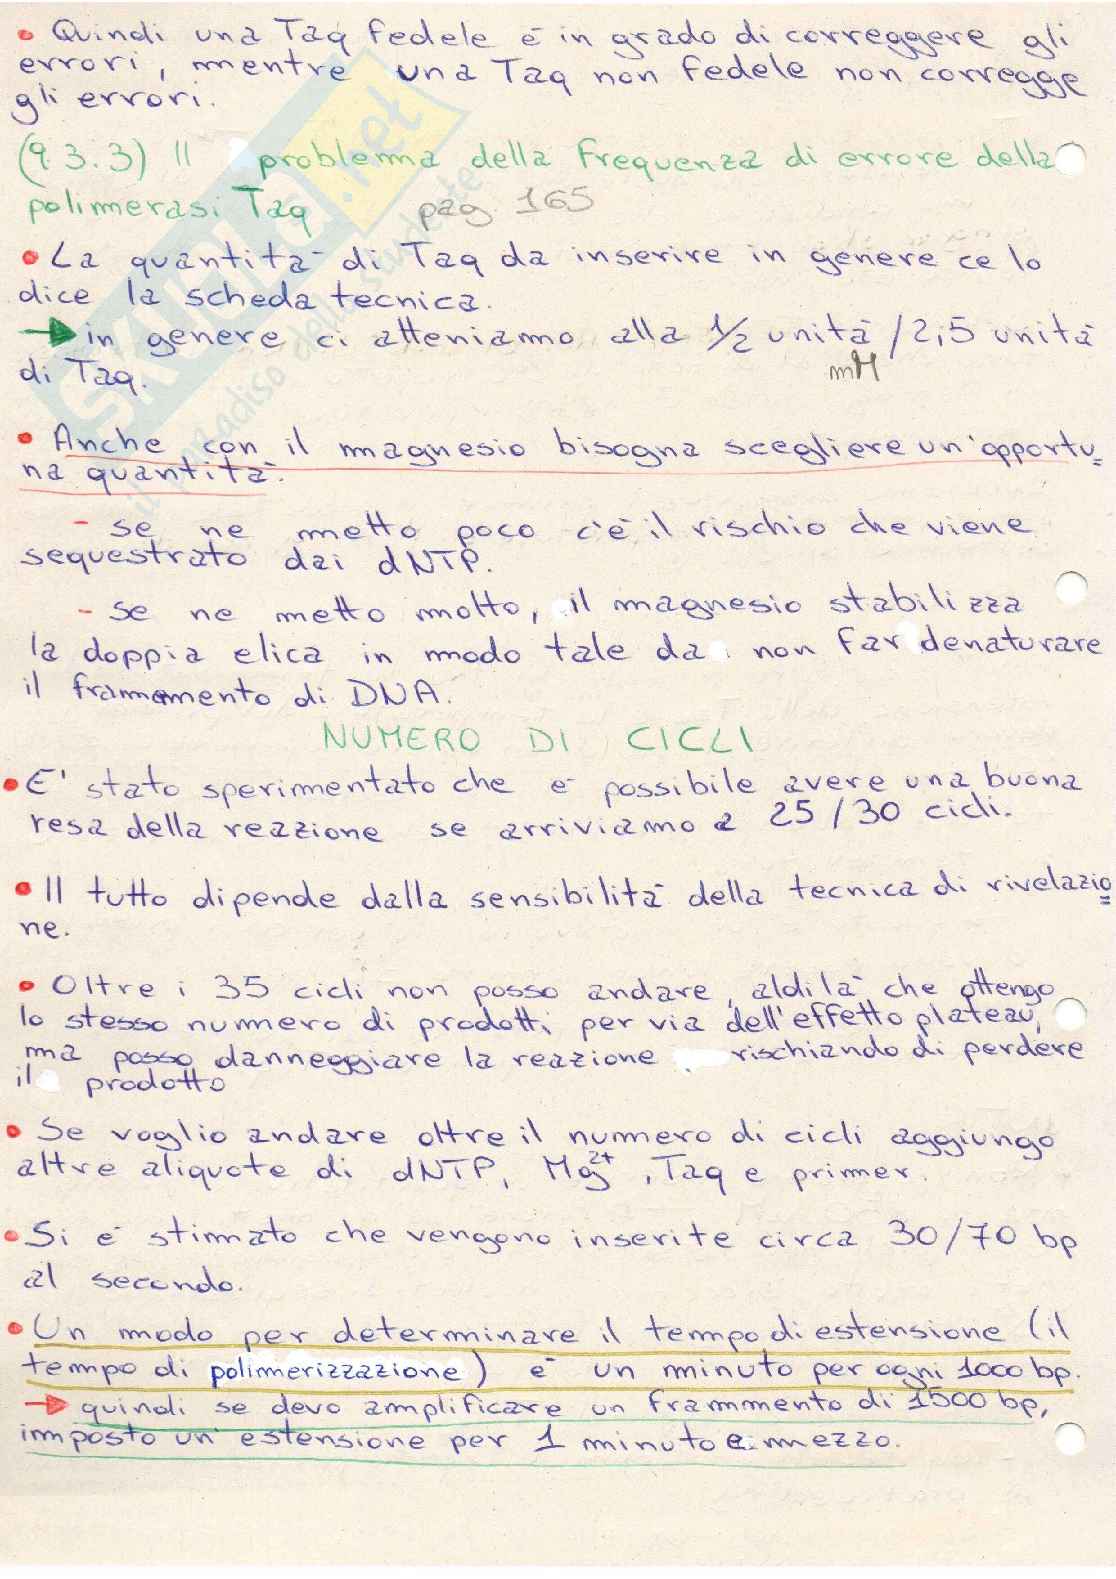 • Quindi una Taq fedele è in grado di correggere gli
errori, mentre una Taq non fedele non corregge
gli errori.
(9.3.3) Il problema della frequenza di errore della
polimerasi Taq pag. 165
• La quantità di Taq da inserire in genere ce lo
dice la scheda tecnica.
→ in genere ci atteniamo alla 1/2 unità /2,5 unità
mM
di Taq.
• Anche con il magnesio bisogna scegliere un'opportu=
na quantità.
- se ne metto poco c'è il rischio che viene
sequestrato dai dNTP.
- se ne metto molto, il magnesio stabilizza
la doppia elica in modo tale da non far denaturare
il frammento di DNA.
NUMERO DI CICLI
• E' stato sperimentato che è possibile avere una buona
resa della reazione se arriviamo a 25/30 cicli.
• Il tutto dipende dalla sensibilità della tecnica di rivelazio=
ne.
• Oltre i 35 cicli non posso andare, aldilà che ottengo
lo stesso numero di prodotti per via dell'effetto plateau,
ma posso danneggiare la reazione rischiando di perdere
il prodotto
• Se voglio andare oltre il numero di cicli aggiungo
altre aliquote di dNTP, Mg2+, Taq e primer.
• Si è stimato che vengono inserite circa 30/70 bp
al secondo.
• Un modo per determinare il tempo di estensione (il
tempo di polimerizzazione) è un minuto per ogni 1000 bp.
→ quindi se devo amplificare un frammento di 1500 bp,
imposto un' estensione per 1 minuto e mezzo.
SKUOLA.net
il paradiso dello studente